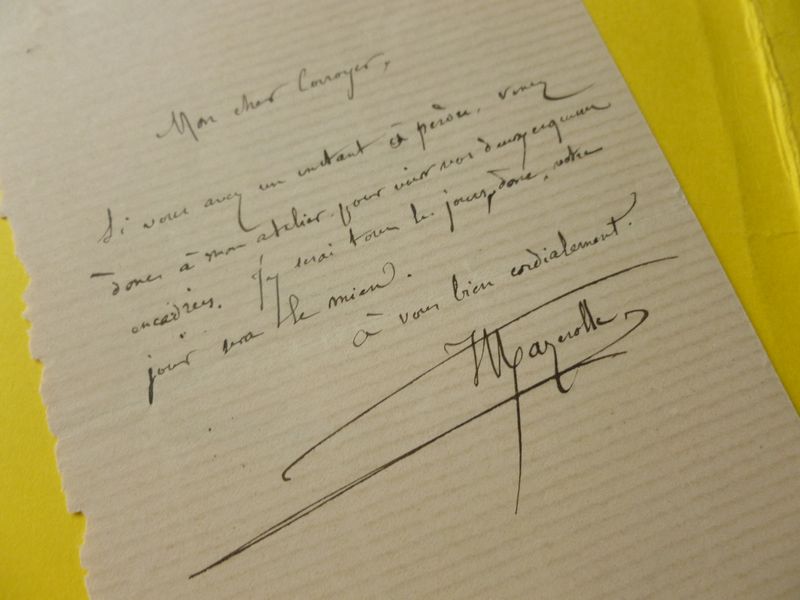 Mon cher Corroyer,
Si vous avez un instant à perdre, venez
donc à mon atelier pour voir vos deux esquisses
encadrées. J'y serai tous les jours, donc, votre
jour sera le mien.
à vous bien cordialement.
Mazerolle